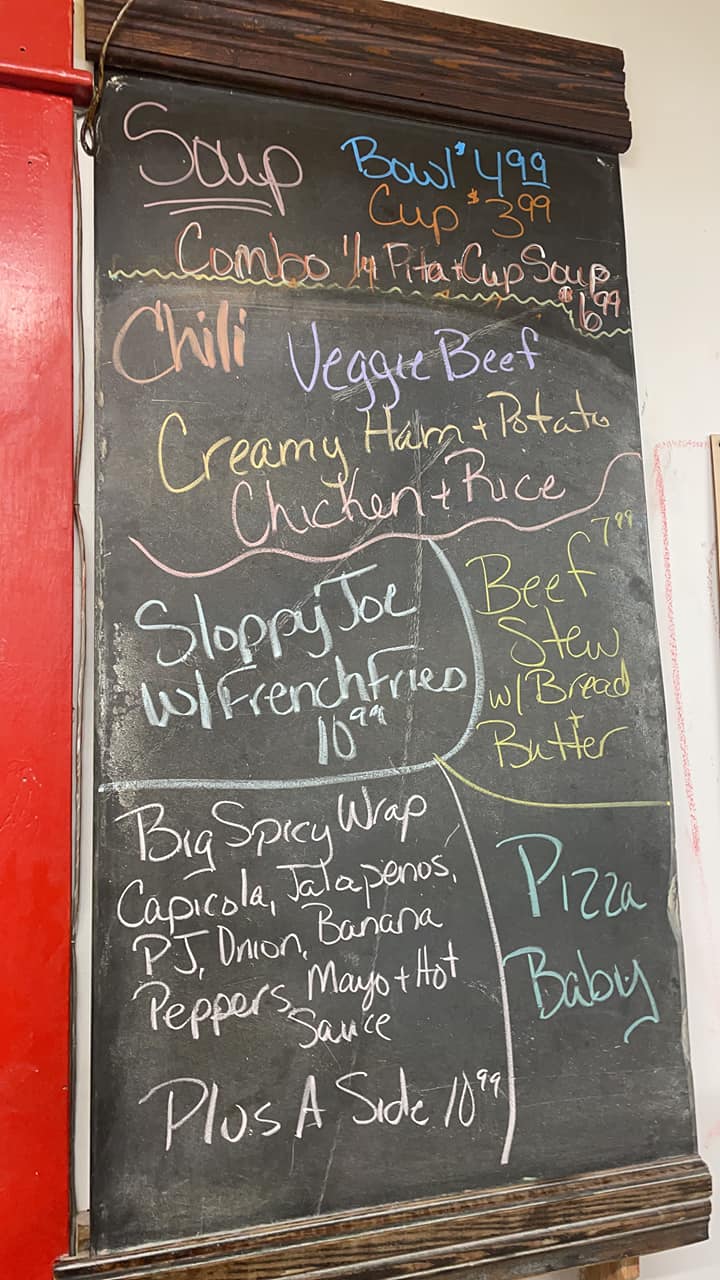 Soup
Bowl $4.99
Cup $3.99
Combo 1/4 Pita + Cup Soup
$6.99
Chili Veggie Beef
Creamy Ham + Potato
Chicken + Rice
Sloppy Joe
w/ French Fries
10.99
Beef 7.99
Stew
w/ Bread
+
Butter
Big Spicy Wrap
Capicola, Jalapenos,
PJ, Onion, Banana
Peppers, Mayo + Hot
Sauce
Plus A Side 10.99
Pizza
Baby